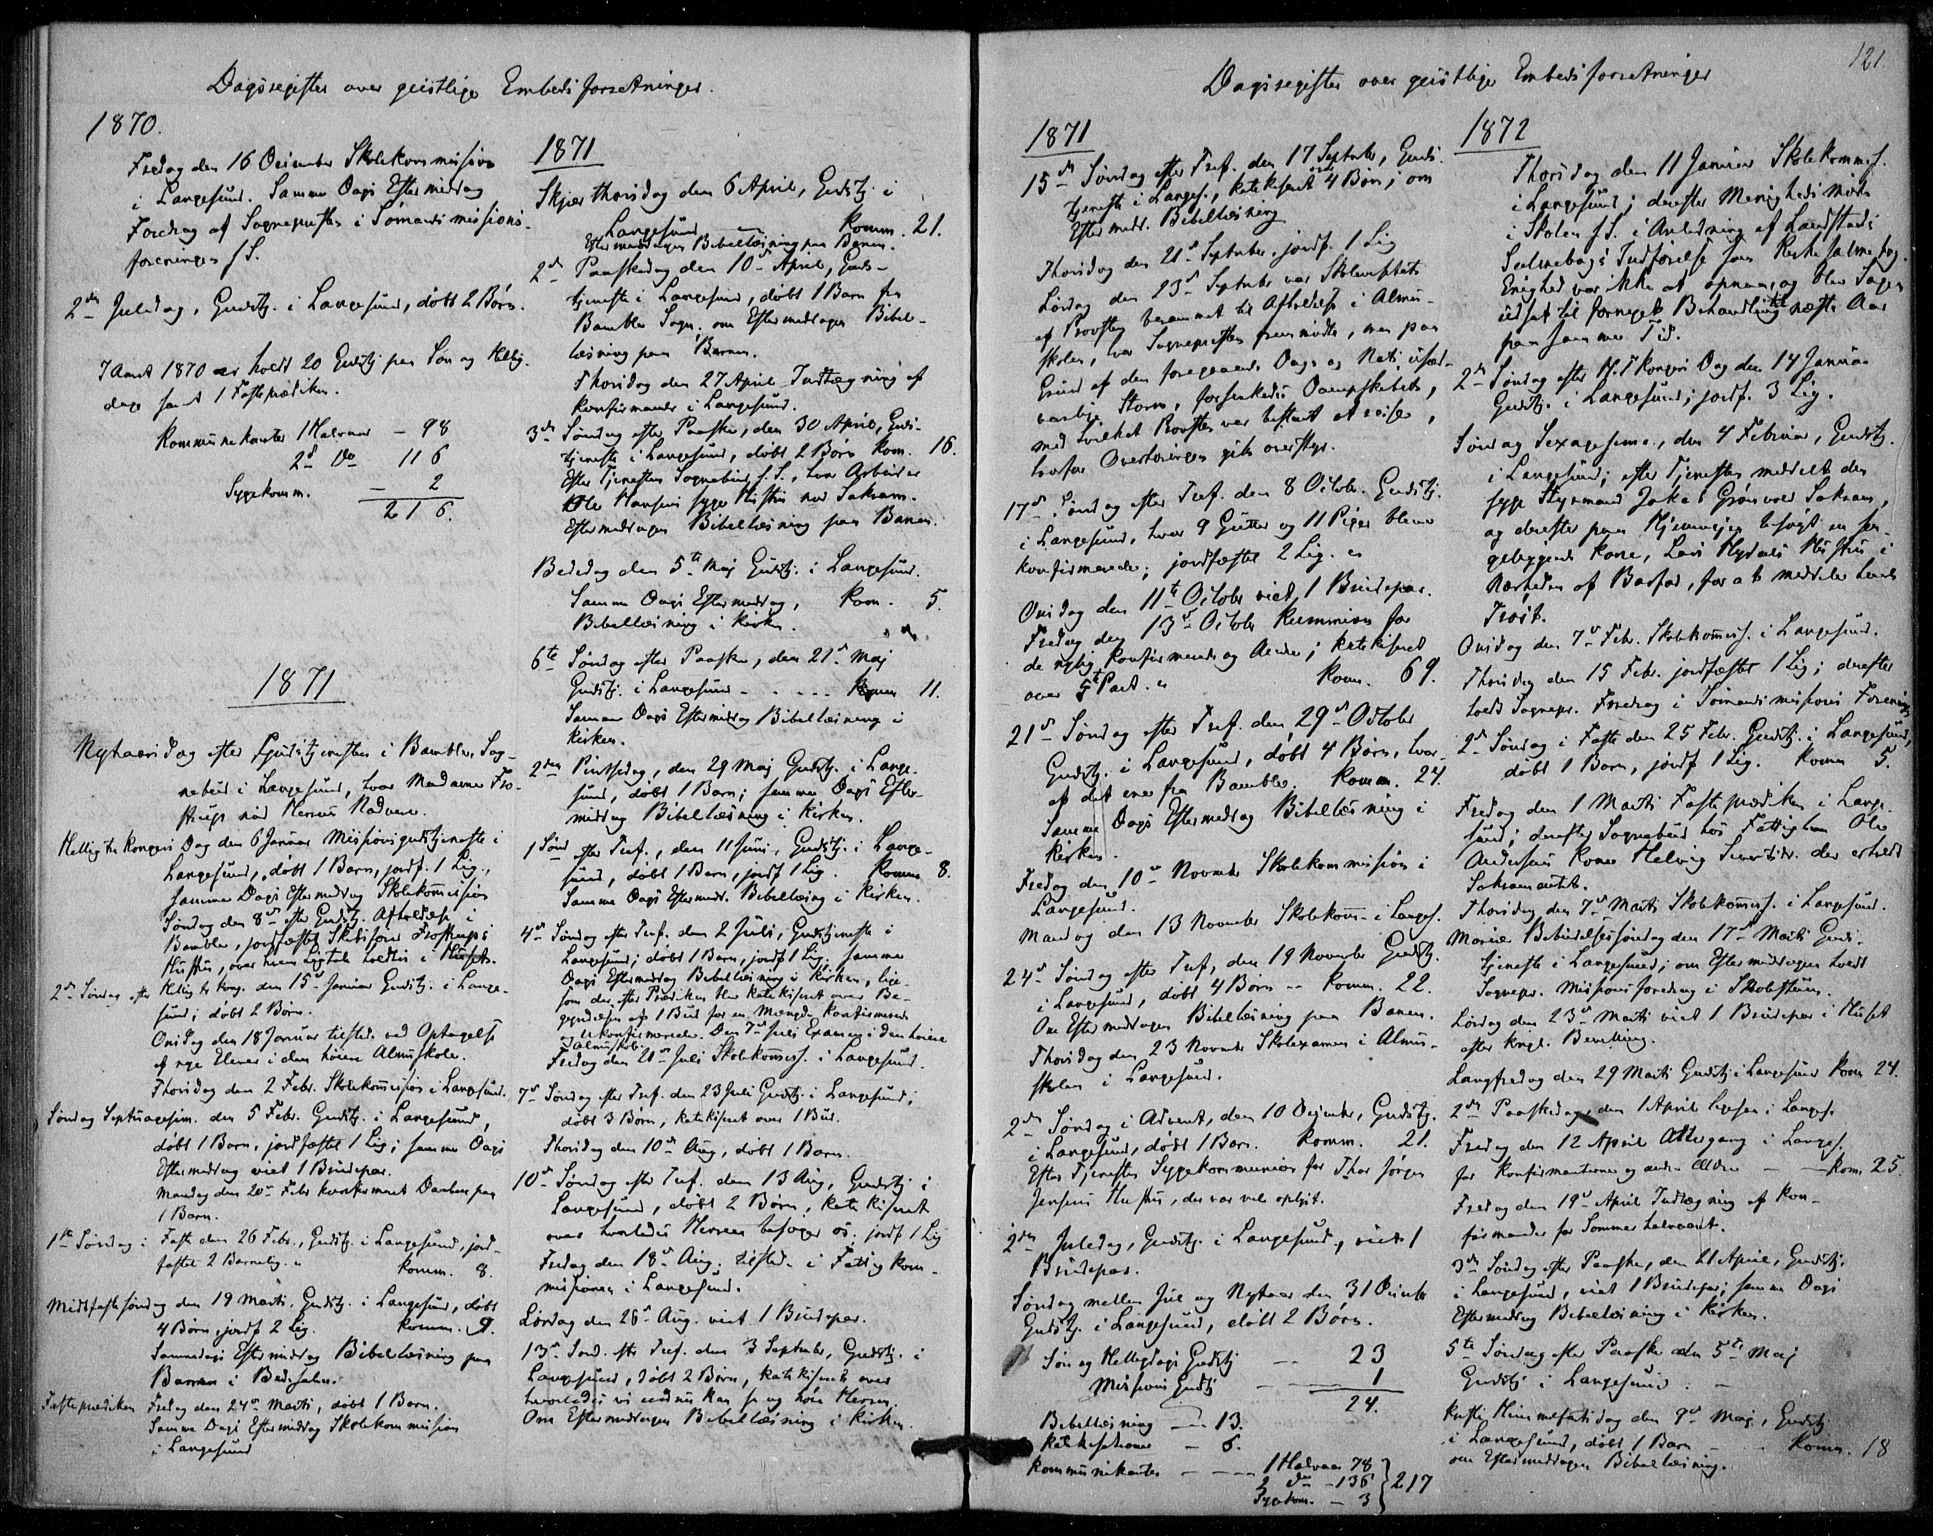 Dagsregister over geistlige Embedsforretninger.
1870.
Fredag den 16 December Skolekommission
i Langesund. Samme Dags Eftermiddag
Foredrag af Sognepresten i Sømandsmissions-
foreningen s.S.
2den Juledag, Gudstj. i Langesund, døbt 2 Børn.
I Aaret 1870 er holdt 20 Gudstj paa Søn og Hellig-
dage samt 1 Fasteprædiken.
Kommunikanter 1 Halvaar - 98
2d Do 116
Sygekomm. - 2
216.
1871
Nytaarsdag efter Gudstjenesten i Bamble, Sog-
nebud i Langesund, hvor Madame Fro-
strup nød Herrens Nadvere.
Hellig tre Kongers Dag den 6 Januar Missionsgudstjeneste i
Langesund, døbt 1 Barn, jordf. 1 Lig,
samme Dags Eftermiddag Skolekommission
Søndag den 8de efter Gudstj. Afholdelse i
Bamble, jordfæstet Skibsfører Frostrups
Hustru, over hvem Ligtale holdtes i Huset.
2den Søndag efter Hellig tr Kong. den 15de Januar Gudstj. i Lange-
sund; døbt 2 Børn.
Onsdag den 18 Januar tilstede ved Optagelse
af nye Elever i den høiere Almuskole.
Thorsdag den 2 Febr. Skolekommission i Langesund.
Søndag Septuagesim. den 5 Febr. Gudstj. i Langesund,
døbt 1 Barn, jordfæstet 1 Lig; samme Dags
Eftermiddag viet 1 Brudepar.
Mandag den 20de Febr konfirmeret Daaben paa
1 Barn.
1ste Søndag i Faste den 26 Febr., Gudstj. i Langesund, jord-
fæstet 2 Barnelig. Komm. 8.
Midtfastesøndag den 19 Marts, Gudstj. i Langesund, døbt
4 Børn, jordf 2 Lig. Komm. 9.
Sammedags Eftermiddag Bibellæsning paa
Banen i Bedehuset.
Fasteprædiken Fredag den 24de Marts, døbt 1 Barn.
Samme Dags Eftermiddag Skolekommission
i Langesund
1871
Skjærthorsdag den 6 April, Gudstj. i
Langesund - Komm. 21.
Eftermiddagen Bibellæsning paa Banen.
2den Paaskedag den 10de April, Guds-
tjeneste i Langesund, døbt 1 Barn fra
Bamble Sogn. om Eftermiddagen Bibel-
læsning paa Banen.
Thorsdag den 27 April Indtegning af
Konfirmander i Langesund.
3die Søndag efter Paaske, den 30 April, Guds-
tjeneste i Langesund, døbt 2 Børn Kom. 16.
Efter Tjenesten Sognebud s.S., hvor Arbeider
Ole Hansens syge Hustru nød Sakram.
Eftermiddagen Bibellæsning paa Banen.
Bededag den 5te Maj Gudstj. i Langesund.
Samme Dags Eftermiddag, Kom. 5.
Bibellæsning i Kirken.
6te Søndag efter Paaske, den 21de Maj
Gudstj. i Langesund - - - - - Komm 11.
Samme Dags Eftermiddag Bibellæsning i
Kirken.
2den Pintsedag, den 29 Maj Gudstj. i Lange-
sund, døbt 1 Barn; samme Dags Efter-
middag Bibellæsning i Kirken.
1 Sønd efter Tref., den 11 Juni, Gudstj. i Lange-
sund, døbt 1 Barn, jordf 1 Lig. Komm. 8.
Samme Dags Eftermidd. Bibellæsning i Kirken.
4de Søndag efter Tref. den 2 Juli, Gudstjeneste i
Langesund; døbt 1 Barn, jordf 1 Lig. samme
Dags Eftermiddag Bibellæsning i Kirken, lige-
som der efter Prædiken blev katekiseret over Be-
gyndelsen af 1 Bud for en Mængde Konfirmerede
og Ukonfirmerede. Den 7de Juli Examen i den høiere
Almuskole.
Fredag den 21de Juli Skolekommiss. i Langesund.
7de Søndag efter Tref. den 23 Juli Gudstj. i Langesund;
døbt 3 Børn, katekiseret over 1 Bud.
Thorsdag den 10de Aug, døbt 1 Barn.
10de Søndag efter Tref. den 13 Aug, Gudstj i
Langesund, døbt 2 Børn, katekiseret
over hvorledes Herren besøger os. jordf 1 Lig
Fredag den 18de Aug. tilstede i Fattigkom-
missionen i Langesund.
Lørdag den 26de Aug. viet 1 Brudepar.
13de Sønd. efter Tref. den 3 September, Gudstj. i
Langesund, døbt 2 Børn, katekiseret over
hvorledes vi endnu kan se og høre Herren.
Om Eftermiddagen Bibellæsning i Kirken.
121
Dagsregister over geistlige Embedsforretninger
1871
15de Søndag efter Tref. den 17 Septmbr, Guds-
tjeneste i Langes., katekiseret 4 Børn; om
Efterm. Bibellæsning
Thorsdag den 21de Septmbr. jordf. 1 Lig
Lørdag den 23de Septmbr var Skolemøde
af Provsten berammet til Afholdelse i Almu-
skolen, hvor Sognepresten fremmødte, men paa
Grund af den foregaaende Dags og Nats usæd-
vanlige Storm, forsinkedes Dampskibet,
med hvilket Provsten var bestemt at reise,
hvorfor Overhøringen gik overstyr.
17de Søndag efter Tref. den 8 Octob. Gudstj.
i Langesund, hvor 9 Gutter og 11 Piger bleve
konfirmerede; jordfæstet 2 Lig.
Onsdag den 11te October viet 1 Brudepar.
Fredag den 13de October Kommunion for
de nylig Konfirmerede og Andre; katekiseret
over 5te Part. Komm. 69.
21de Søndag efter Tref. den 29de October
Gudstj. i Langesund, døbt 4 Børn, hvor-
af det ene fra Bamble. Komm. 24.
Samme Dags Eftermiddag Bibellæsning i
Kirken.
Fredag den 10de Novmbr Skolekommission i
Langesund.
Mandag den 13 November Skolekomm. i Langes.
24de Søndag efter Tref, den 19 November Gudstj.
i Langesund, døbt 4 Børn -- Komm. 22.
Om Eftermiddagen Bibellæsning paa Banen.
Thorsdag den 23 Novmbr Skolexamen i Almu-
skolen i Langesund.
2den Søndag i Advent, den 10 Decmbr, Gudstj.
i Langesund, døbt 1 Barn. Komm. 21.
Efter Tjenesten Sygekommunion for Thor Jørgen
Jensens Hustru, der var vel oplyst.
2den Juledag, Gudstj. i Langesund, viet 1
Brudepar.
Søndag mellem Jul og Nytaar den 31 Decmbr
Gudstj. i Langesund, døbt 2 Børn.
Søn og Helligdags Gudstj -- 23
Missions Gudstj - 1
24.
Bibellæsning - 13.
Katekisationer - 6.
Kommunikanter - - - 1 Halvaar 78
2 do - 136
Sygekom. - 3
217
1872
Thorsdag den 11 Januar Skolekommiss.
i Langesund; derefter Menighedsmøde
i Skolen s.S. i Anledning af Landstads
Salmebogs Indførelse som Kirkesalmebog.
Enighed var ikke at opnaa, og blev Sagen
udsat til fornyet Behandling til næste Aar
paa samme Tid.
2den Søndag efter H.3 Kongers Dag den 14 Januar
Gudstj. i Langesund; jordf. 3 Lig.
Søndag Sexagesima, den 4 Februar, Gudstj.
i Langesund; efter Tjenesten meddelt den
syge Styrmand Jakob Grønvold Sakram,
og derefter paa Hjemveien besøgt en sen-
geliggende Kone, Lars Hydals Hustru i
Nærheden af Baasfad, for at meddele hende
Trøst.
Onsdag den 7de Febr. Skolekommiss. i Langesund.
Thorsdag den 15 Febr. jordfæstet 1 Lig; derefter
holdt Sognepr. Foredrag i Sømandsmissions Forening
2den Søndag i Faste den 25 Febr. Gudstj. i Langesund,
døbt 1 Barn, jordf 1 Lig. Komm 5.
Fredag den 1 Marts Fasteprædiken i Lange-
sund; derefter Sognebud hos Fattiglem Ole
Andersens Kone Helvig Sivertsdr. der erholdt
Sakramentet.
Thorsdag den 7de Marts Skolekommiss. i Langesund.
Mariæ Bebudelsessøndag den 17de Marts Guds-
tjeneste i Langesund; om Eftermiddagen holdt
Sognepr. Missionsforedrag i Skolestuen.
Lørdag den 23de Marts viet 1 Brudepar i Huset
efter Kngl. Bevilling.
Langfredag den 29 Marts Gudstj i Langesund Kom 24.
2den Paaskedag den 1 April Messen i Langes.
Fredag den 12 April Altergang i Langes.
for Konfirmanterne og andre Ældre - Kom. 25
Fredag den 19de April Indtegning af Kon-
firmander for Sommerhalvaaret.
3die Søndag efter Paaske, den 21 April, Gudstj.
i Langesund, viet 1 Brudepar; samme Dags
Eftermiddag Bibellæsning i Kirken.
5te Søndag efter Paaske den 5te Maj
Gudstj i Langesund. -
Kristi Himmelfartsdag den 9de Maj, Gudstj
i Langesund, døbt 1 Barn - - Komm. 18
om Eftermiddagen Bibellæsning.